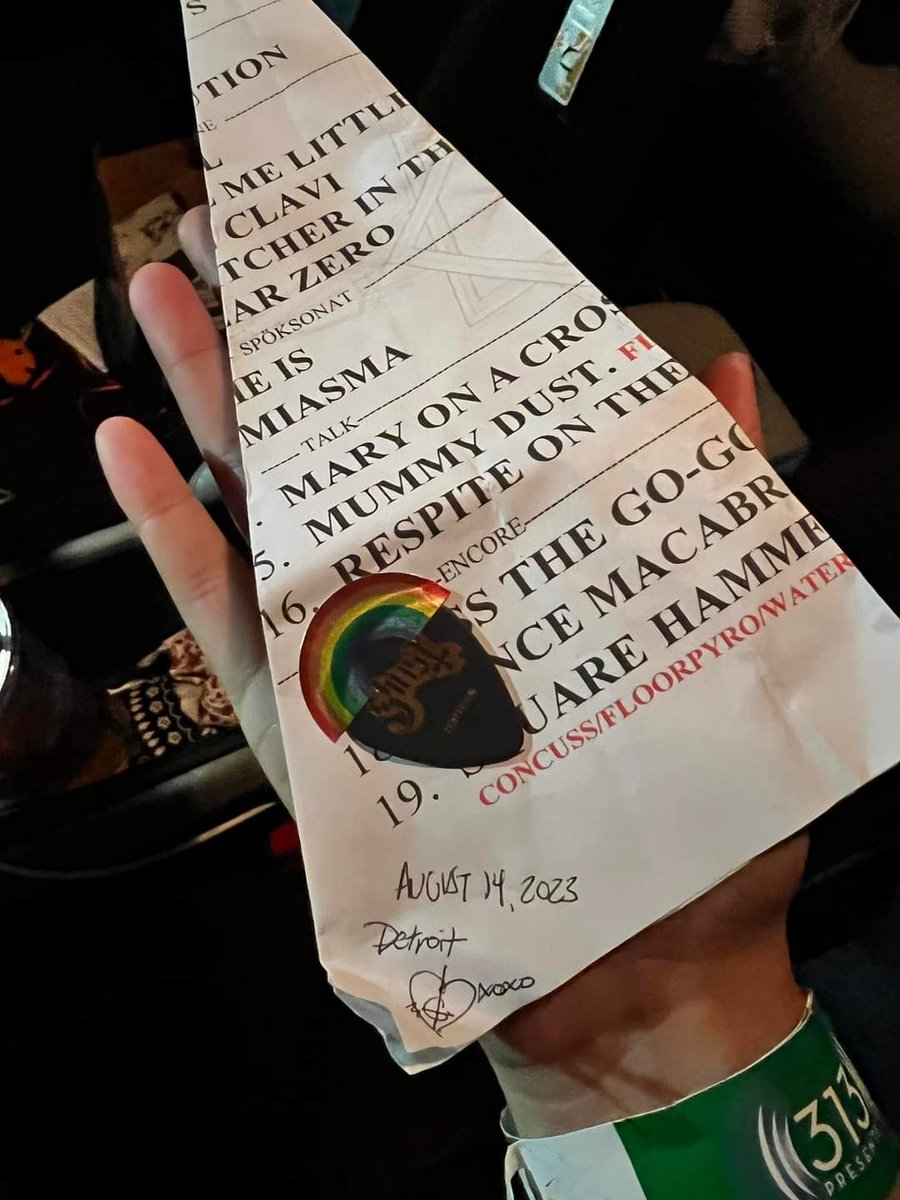 S
TION
NE
L
ME LITTLE
CLAVI
TCHER IN TH
AR ZERO
SPÖKSONAT
HE IS
MIASMA
TALK
. MARY ON A CROS
5. MUMMY DUST. FL
16. RESPITE ON THE
ENCORE
SS THE GO-GO
NCE MACABR
18
19. SQUARE HAMME
CONCUSS/FLOORPYRO/WATER
Ghost
AUGUST 14, 2023
Detroit
xoxo
313
PRESENT